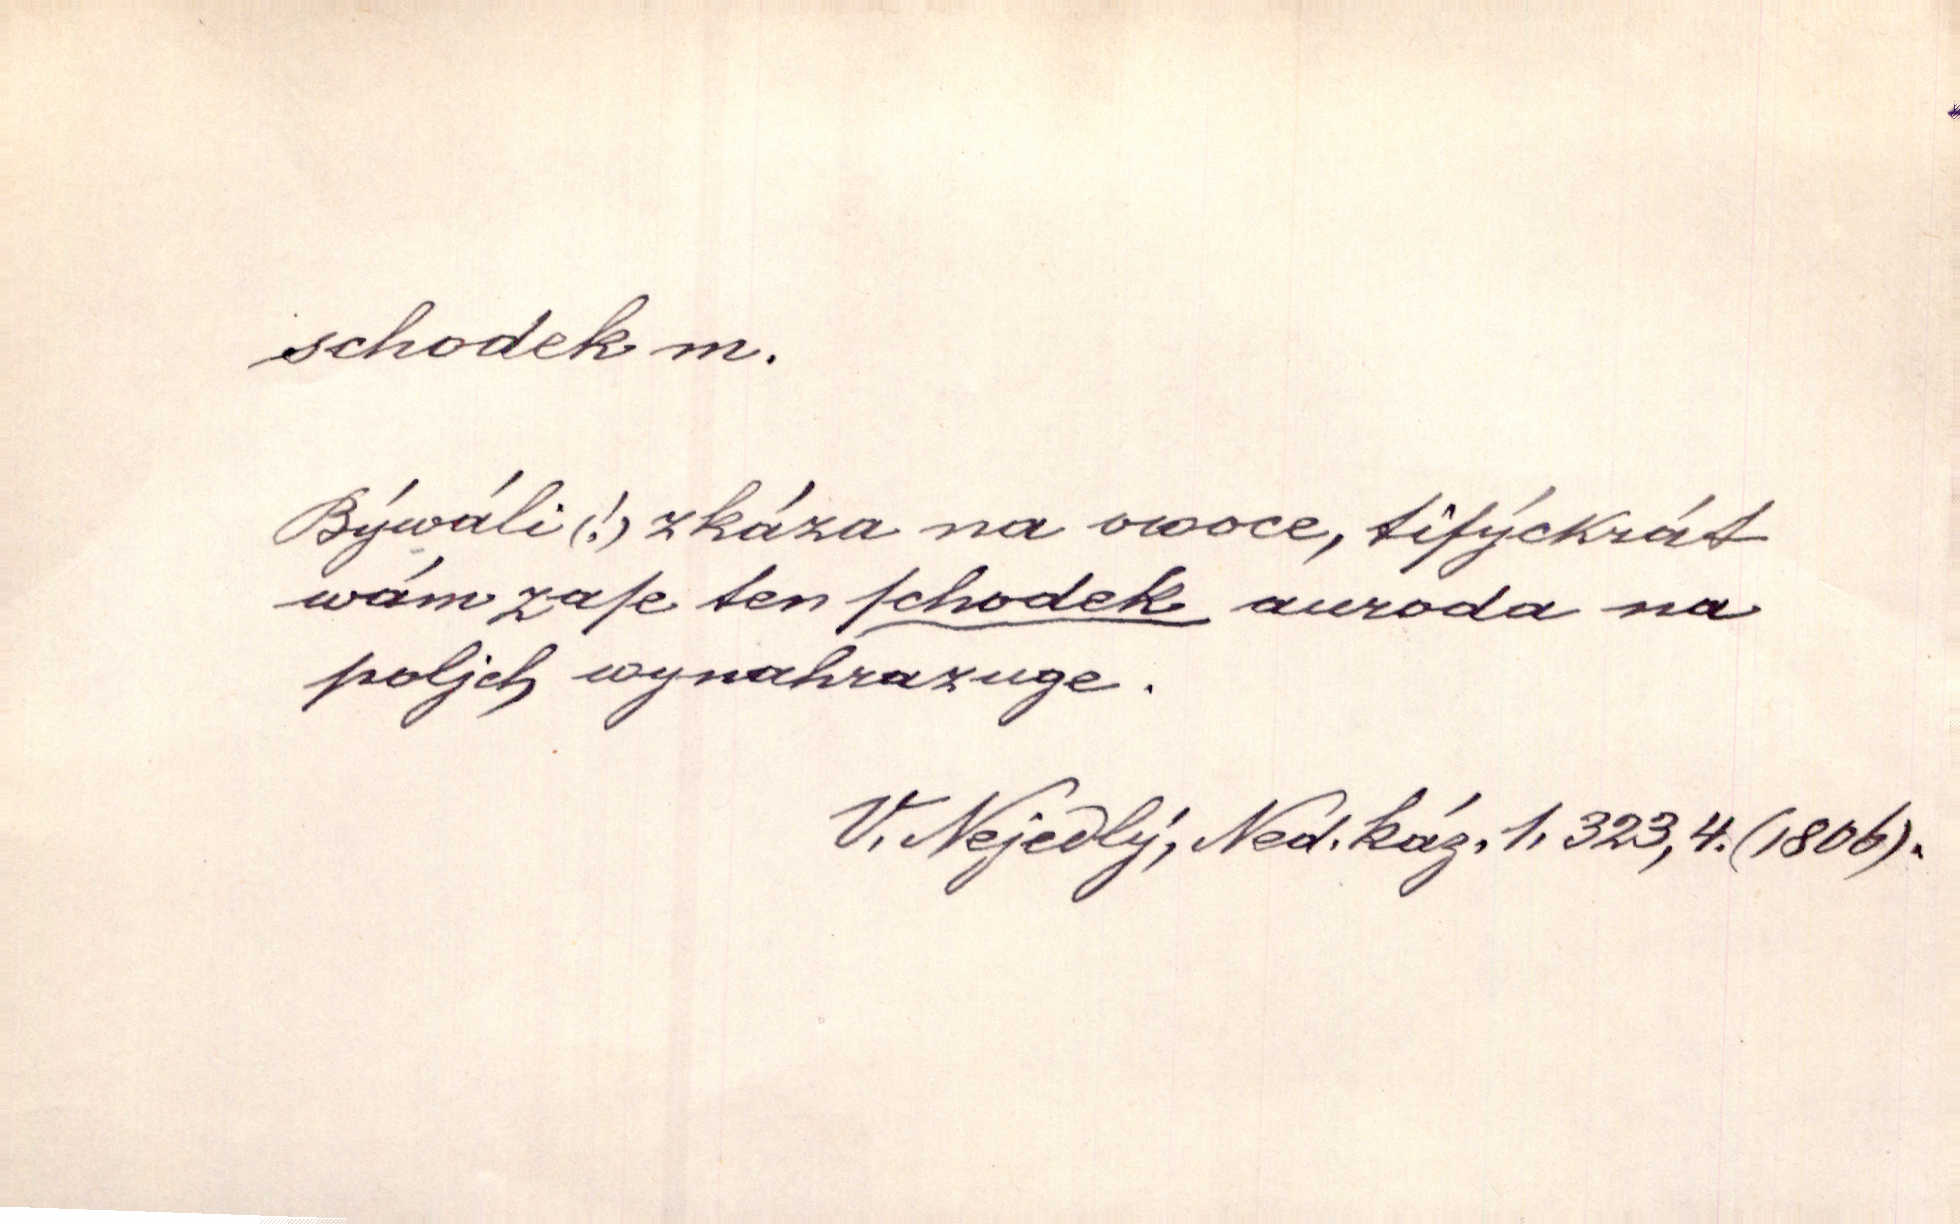 schodek m.
Býwáli (!) zkáza na owoce, tiſýckrát
wám zaſe ten ſchodek auroda na
poljch wynahrazuge.
V. Nejedlý, Ned. káz. 1. 323, 4. (1806).